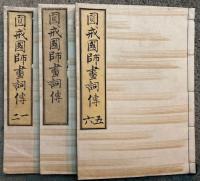 圓戒國師畫詞傳
一
二
圓戒國師畫詞傳
圓戒國師畫詞傳
五
六